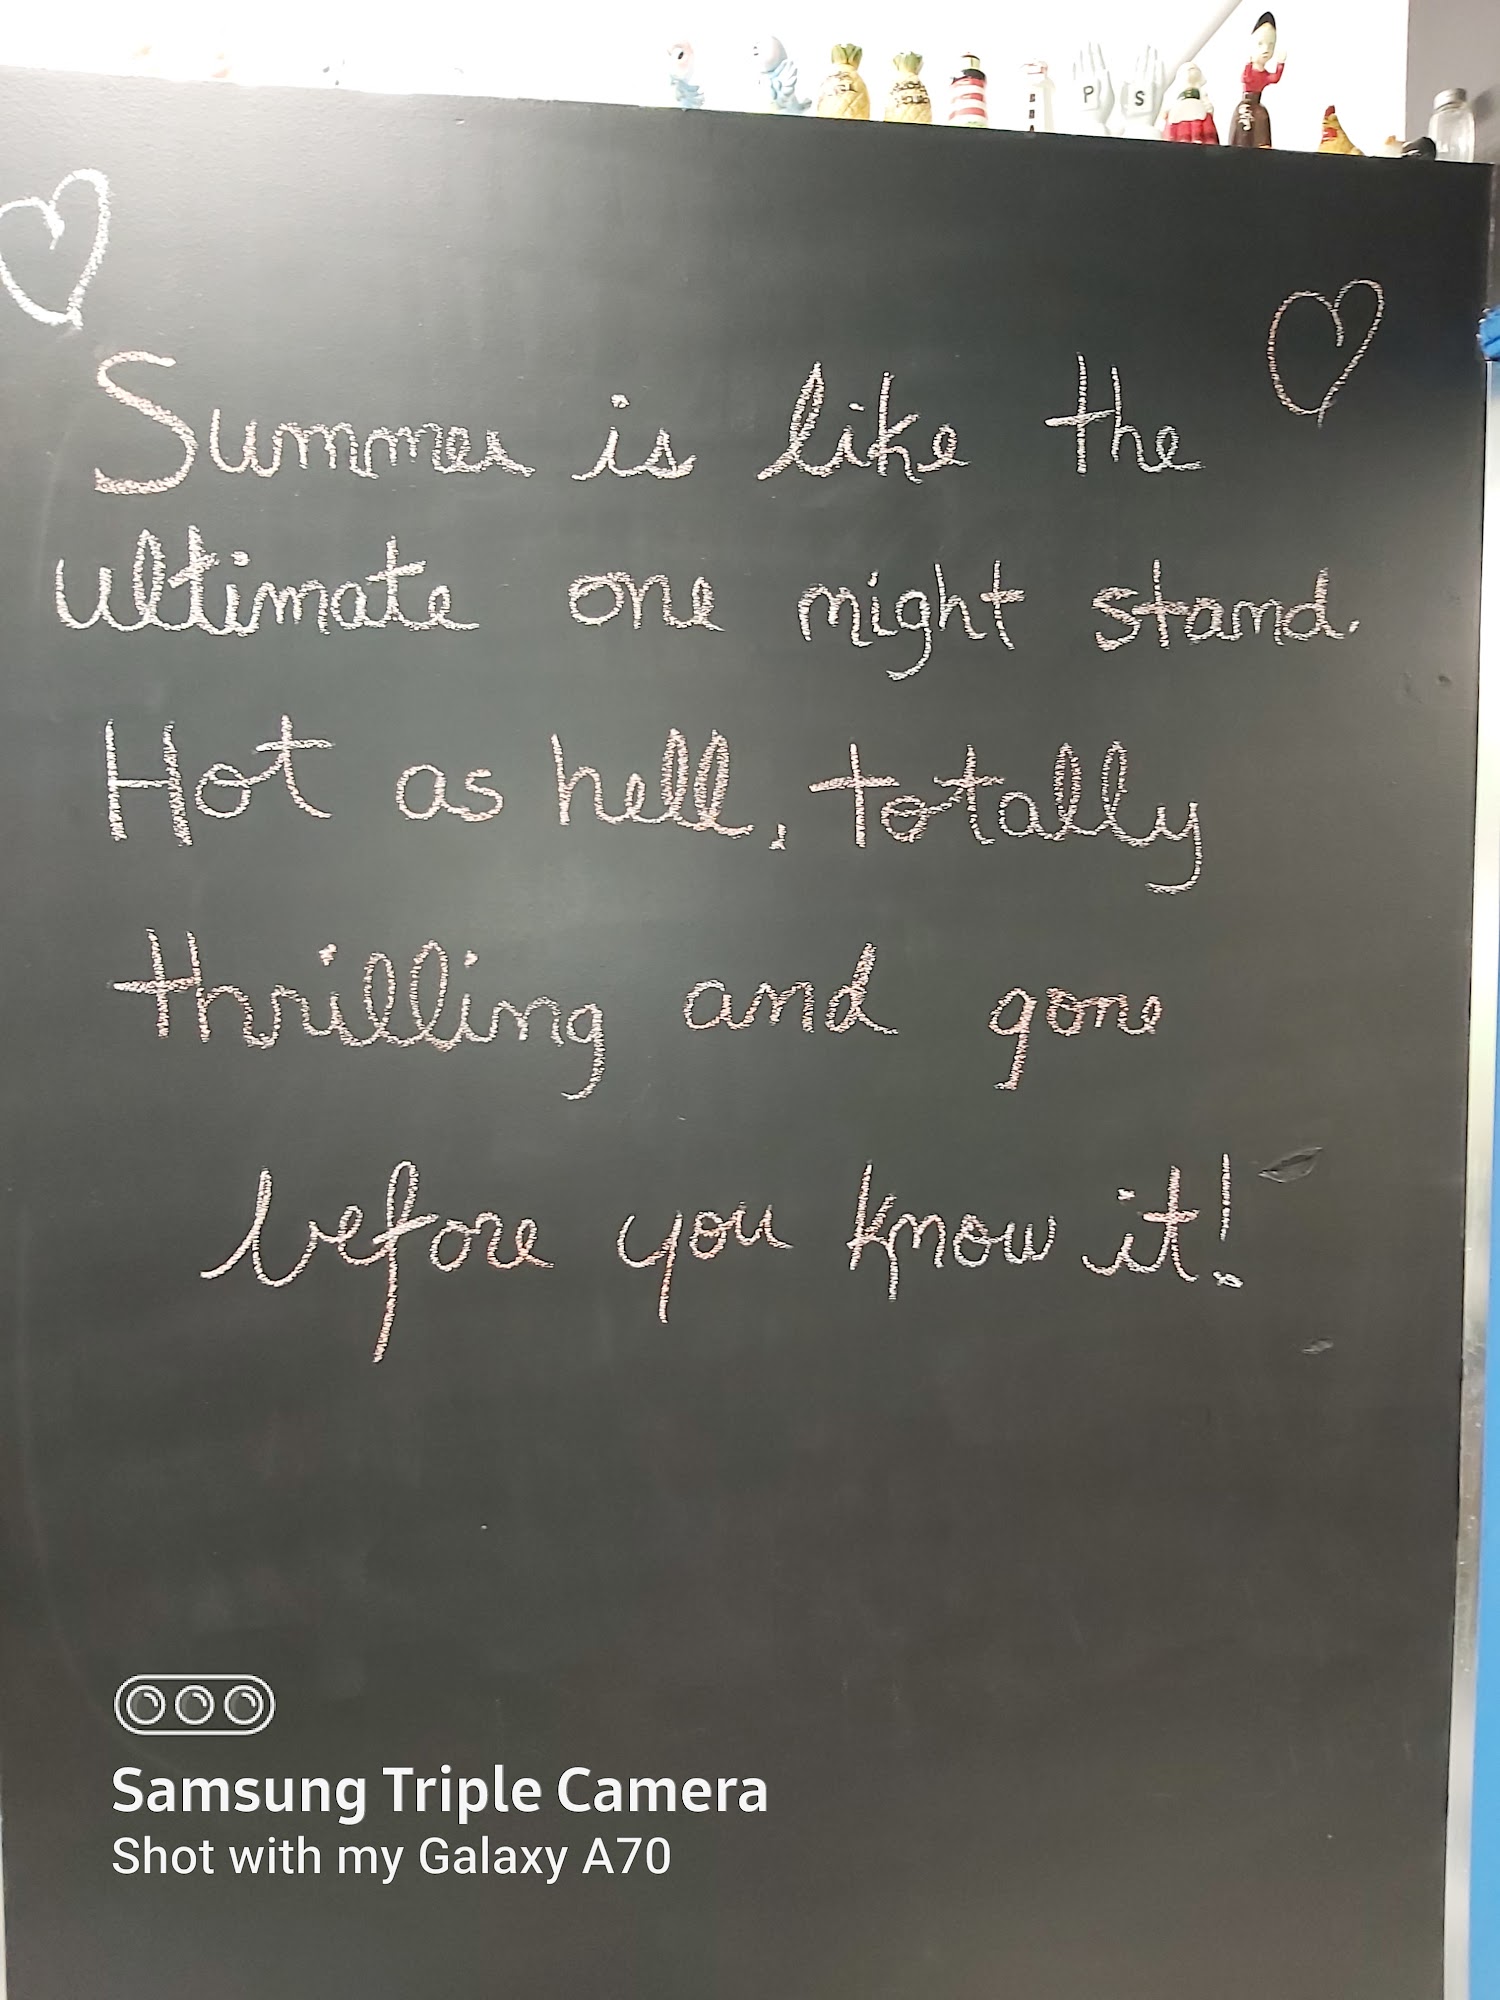 P S
Summer is like the
ultimate one night stand.
Hot as hell, totally
thrilling and gone
before you know it!
Samsung Triple Camera
Shot with my Galaxy A70